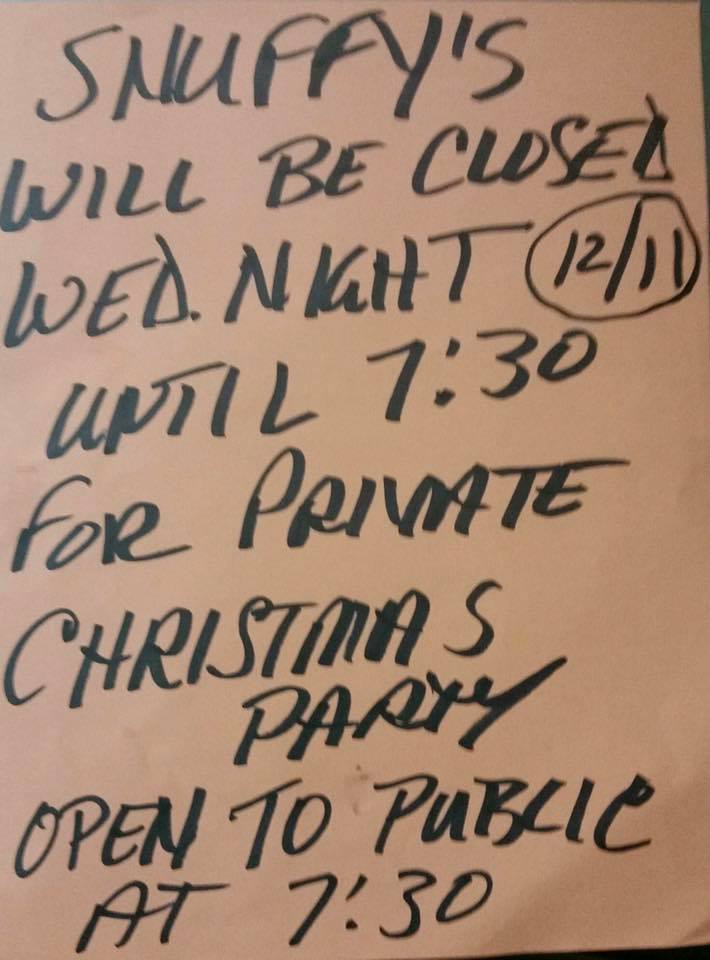 SNUFFY'S
WILL BE CLOSED
WED. NIGHT 12/11
UNTIL 7:30
FOR PRIVATE
CHRISTMAS
PARTY
OPEN TO PUBLIC
AT 7:30